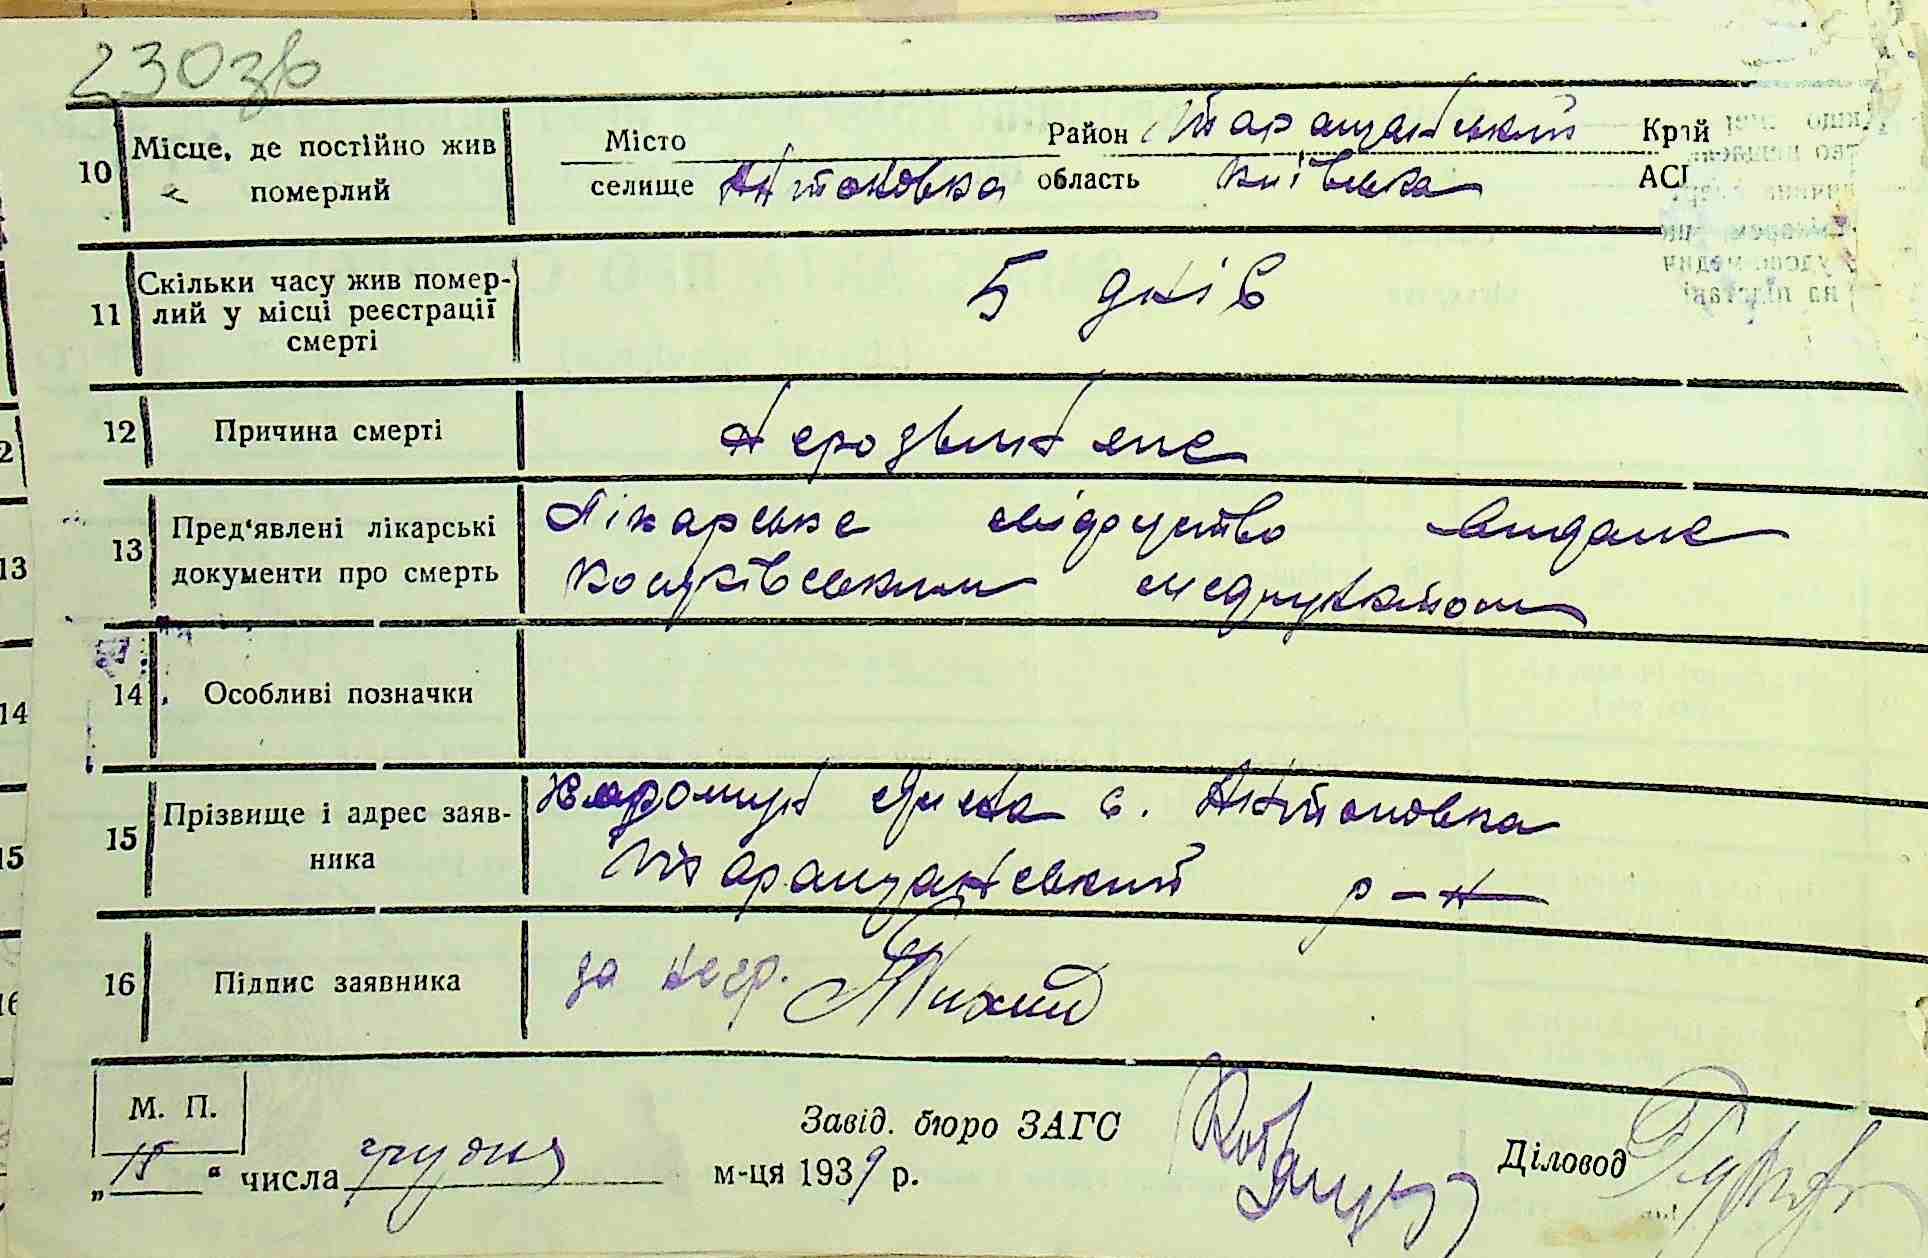 230зв
10 Місце, де постійно жив померлий
Місто Район Таращанський Край
селище Антоновка область Київська АСР
11 Скільки часу жив помер-
лий у місці реєстрації
смерті
5 днів
12 Причина смерті
13 Пред'явлені лікарські
документи про смерть
Лікарське свідоцтво видане
медпунктом
14 Особливі позначки
15 Прізвище і адрес заяв-
ника
с. Антоновка
Таращанський р-н
16 Підпис заявника
за негр. Тихий
М. П.
„15“ числа грудня м-ця 1939 р.
Завід. бюро ЗАГС
Діловод